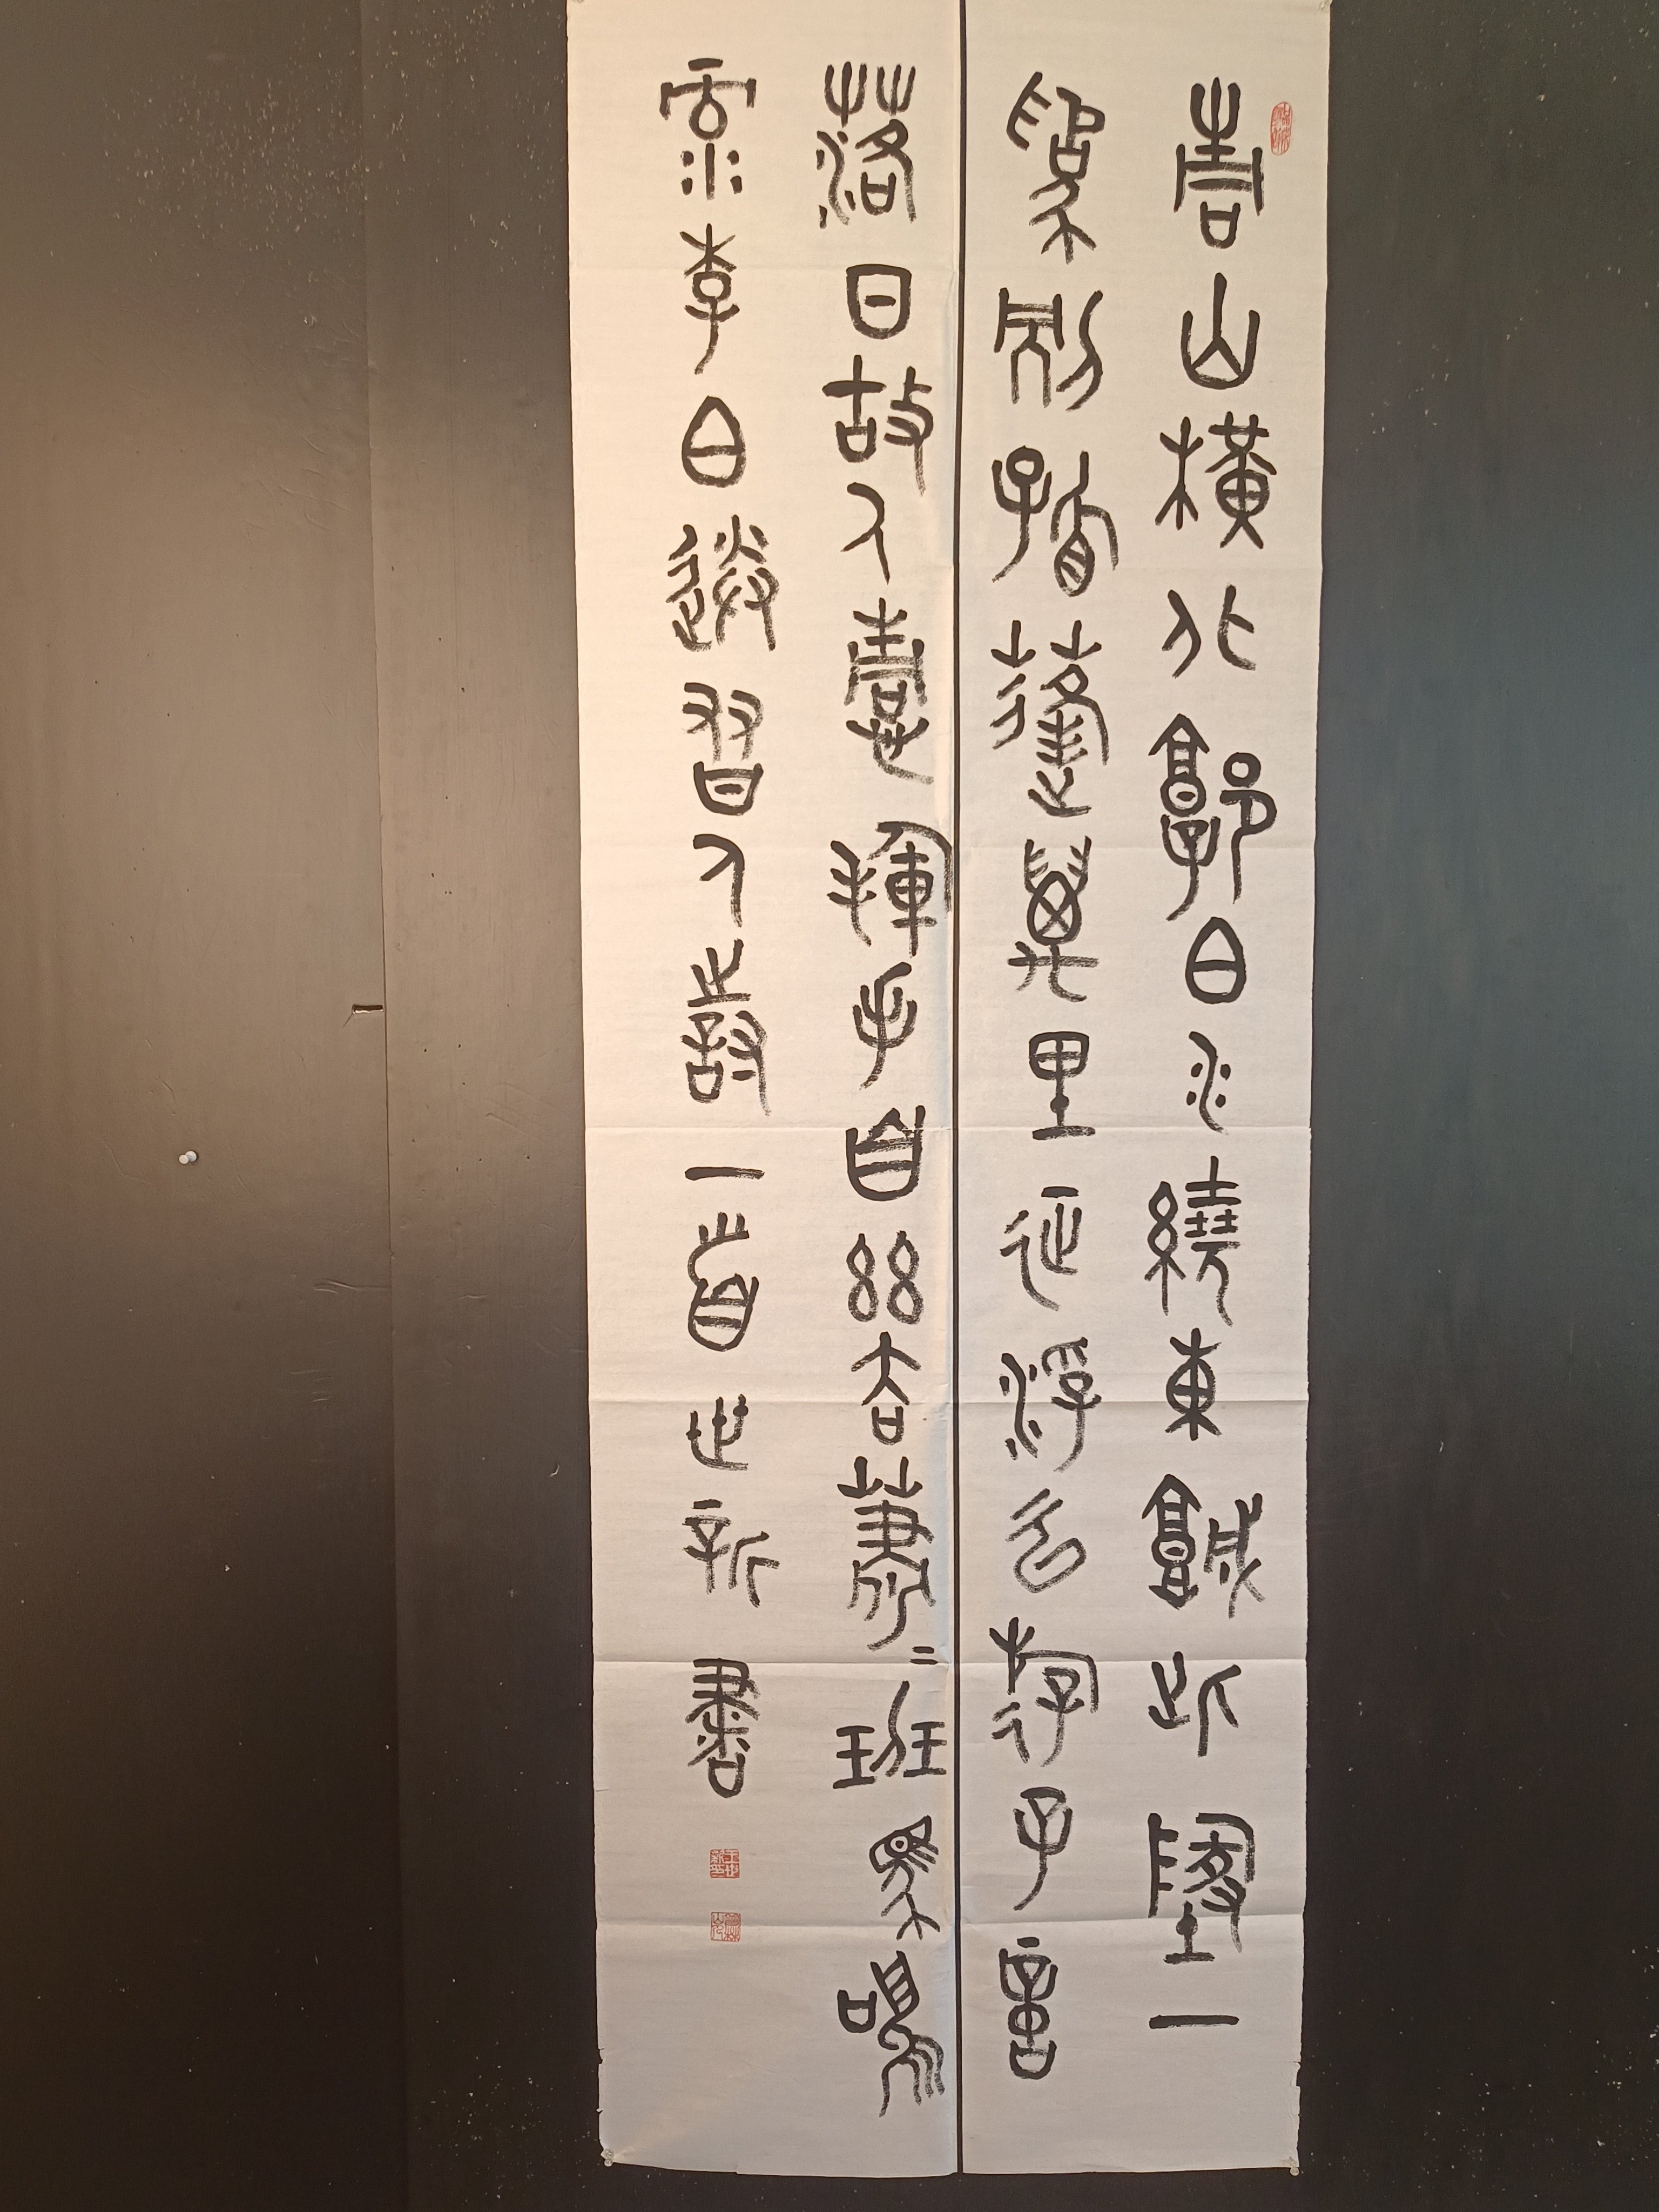 青山橫北郭白水繞東城此地一
為別孤蓬萬里征浮雲游子意
落日故人情揮手自茲去蕭〻班馬鳴
李白送友人詩一首世新書